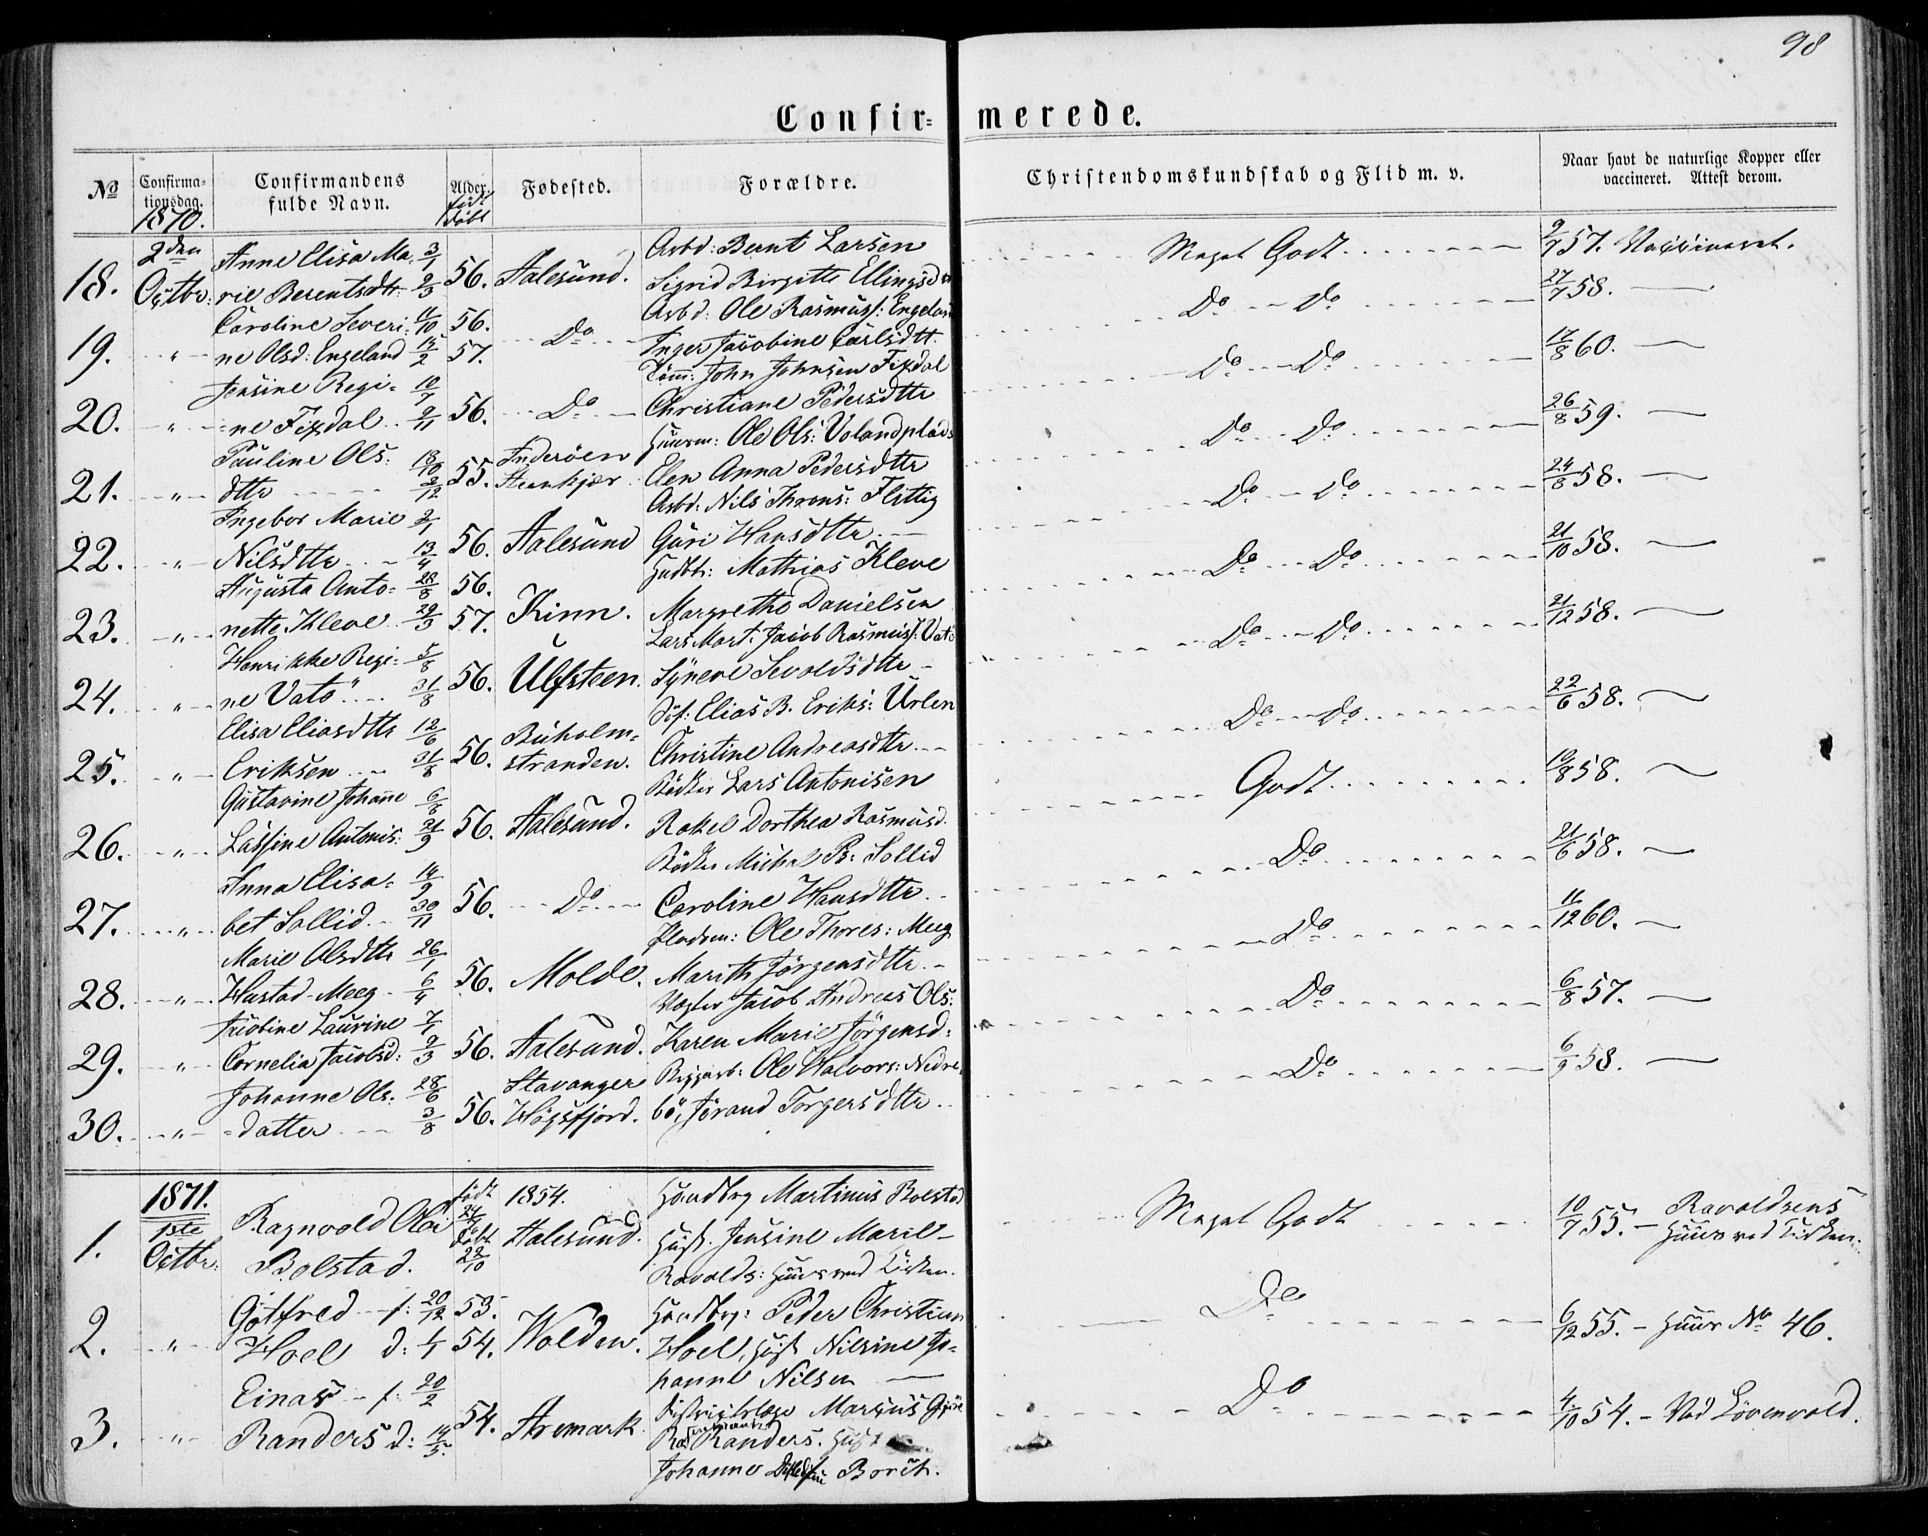 98
Confir= merede.
No
Confirma-
tionsdag.
1870.
Confirmandens
fulde Navn.
Alder.
født
døbt
Fødested.
Forældre.
Christendomskundskab og Flid m. v.
Naar havt de naturlige Kopper eller
vaccineret. Attest derom.
18. 2den Octbr: Anne Elisa Ma- 3/1
rie Berentsdtt: 2/3 56. Aalesund. Arbd: Bernt Larsen
Sigrid Birgitte Ellingsdtr Meget Godt 9/7 57. Vaccineret.
19. " Caroline Severi- 11/10 56.
ne Olsd: Engeland 15/2 57. Do Arbd: Ole Rasmuss: Engeland
Inger Jacobine Carlsdtt. Do Do 27/7 58. —
20. " Jensine Regi- 10/7
ne Fixdal 2/11 56. Do Tøm: John Johnsen Fixdal
Christiane Pedersdttr Do Do 17/8 60. —
21. " Pauline Ols- 18/10
dttr 2/12 55. Inderøen
Steenkjær Huusm: Ole Ols: Volandplads
Elen Anna Pedersdttr Do Do 26/8 59. —
22. " Ingebor Marie 2/1
Nilsdttr 13/4 56. Aalesund Arbd: Nils Throns: Flittig
Guri Hansdttr Do Do 24/8 58. —
23. " Augusta Anto- 28/8 56.
nette Kleve 29/3 57. Kinn. Mathias Kleve
Margrethe Danielsen Do Do 21/10 58. —
24. " Henrikke Regi- 5/8
ne Vatø 31/8 56. Ulfsteen. Lars Mart. Jacob Rasmuss: Vatø
Syneve Sevoldsdttr Do Do 21/12 58. —
25. " Elisa Eliasdttr 12/6
Eriksen 31/8 56. Buholm-
stranden. Elias B. Eriks: Urlen
Christine Andreasdttr Do Do 22/6 58. —
26. " Gustavine Johane 6/8
Lassine Antonis: 21/9 56. Aalesund. Bødker Lars Antonisen
Rakel Dorthea Rasmusd. Godt 19/8 58. —
27. " Anna Elisa- 14/9
bet Sollid 30/11 56. Do Bødker Michal P: Sollid
Caroline Hansdttr Do 21/6 58. —
28. " Marie Olsdttr 26/1
Hustad-Meeg 6/4 56. Molde. Pladsm: Ole Thores: Meeg
Marith Jørgensdttr. Do 11/12 60. —
29. " Jacobine Laurine 7/1
Cornelia Jacobsd: 2/3 56. Aalesund. Vægter Jacob Andreas Ols:
Karen Marie Jørgensd: Do 6/8 57. —
30. " Johanne Ols- 28/6
datter 3/8 56. Stavanger
Høgsfjord. Ole Halvors: Nedre-
bø, Jørand Torgersdttr. Do 6/9 58. —
1871.
1. 1ste
Octbr: Ragnvald Olai
Bolstad. født
24/6
døbt
22/10 1854.
Aalesund. Handbrg Martinus Bolstad
Hust. Jensine Marie
Ravalds: Huus ved Kirken. Meget Godt 10/7 55. — Ravaldsens
Huus ved Kirken.
2. " Gotfred f: 20/12 53.
Hoel d: 1/1 54. Volden. Handbrg: Peder Christian
Hoel, Hust Nilsine Jo-
hanne Nilsen Do 6/12 55. — Huus No 46.
3. " Einar f: 20/2
Randers d: 14/5 54. Aremark. Districtslæge Marcus
Randers. Hust
Johanne Borch. Do 4/10 54. — Ved Lövenvold.